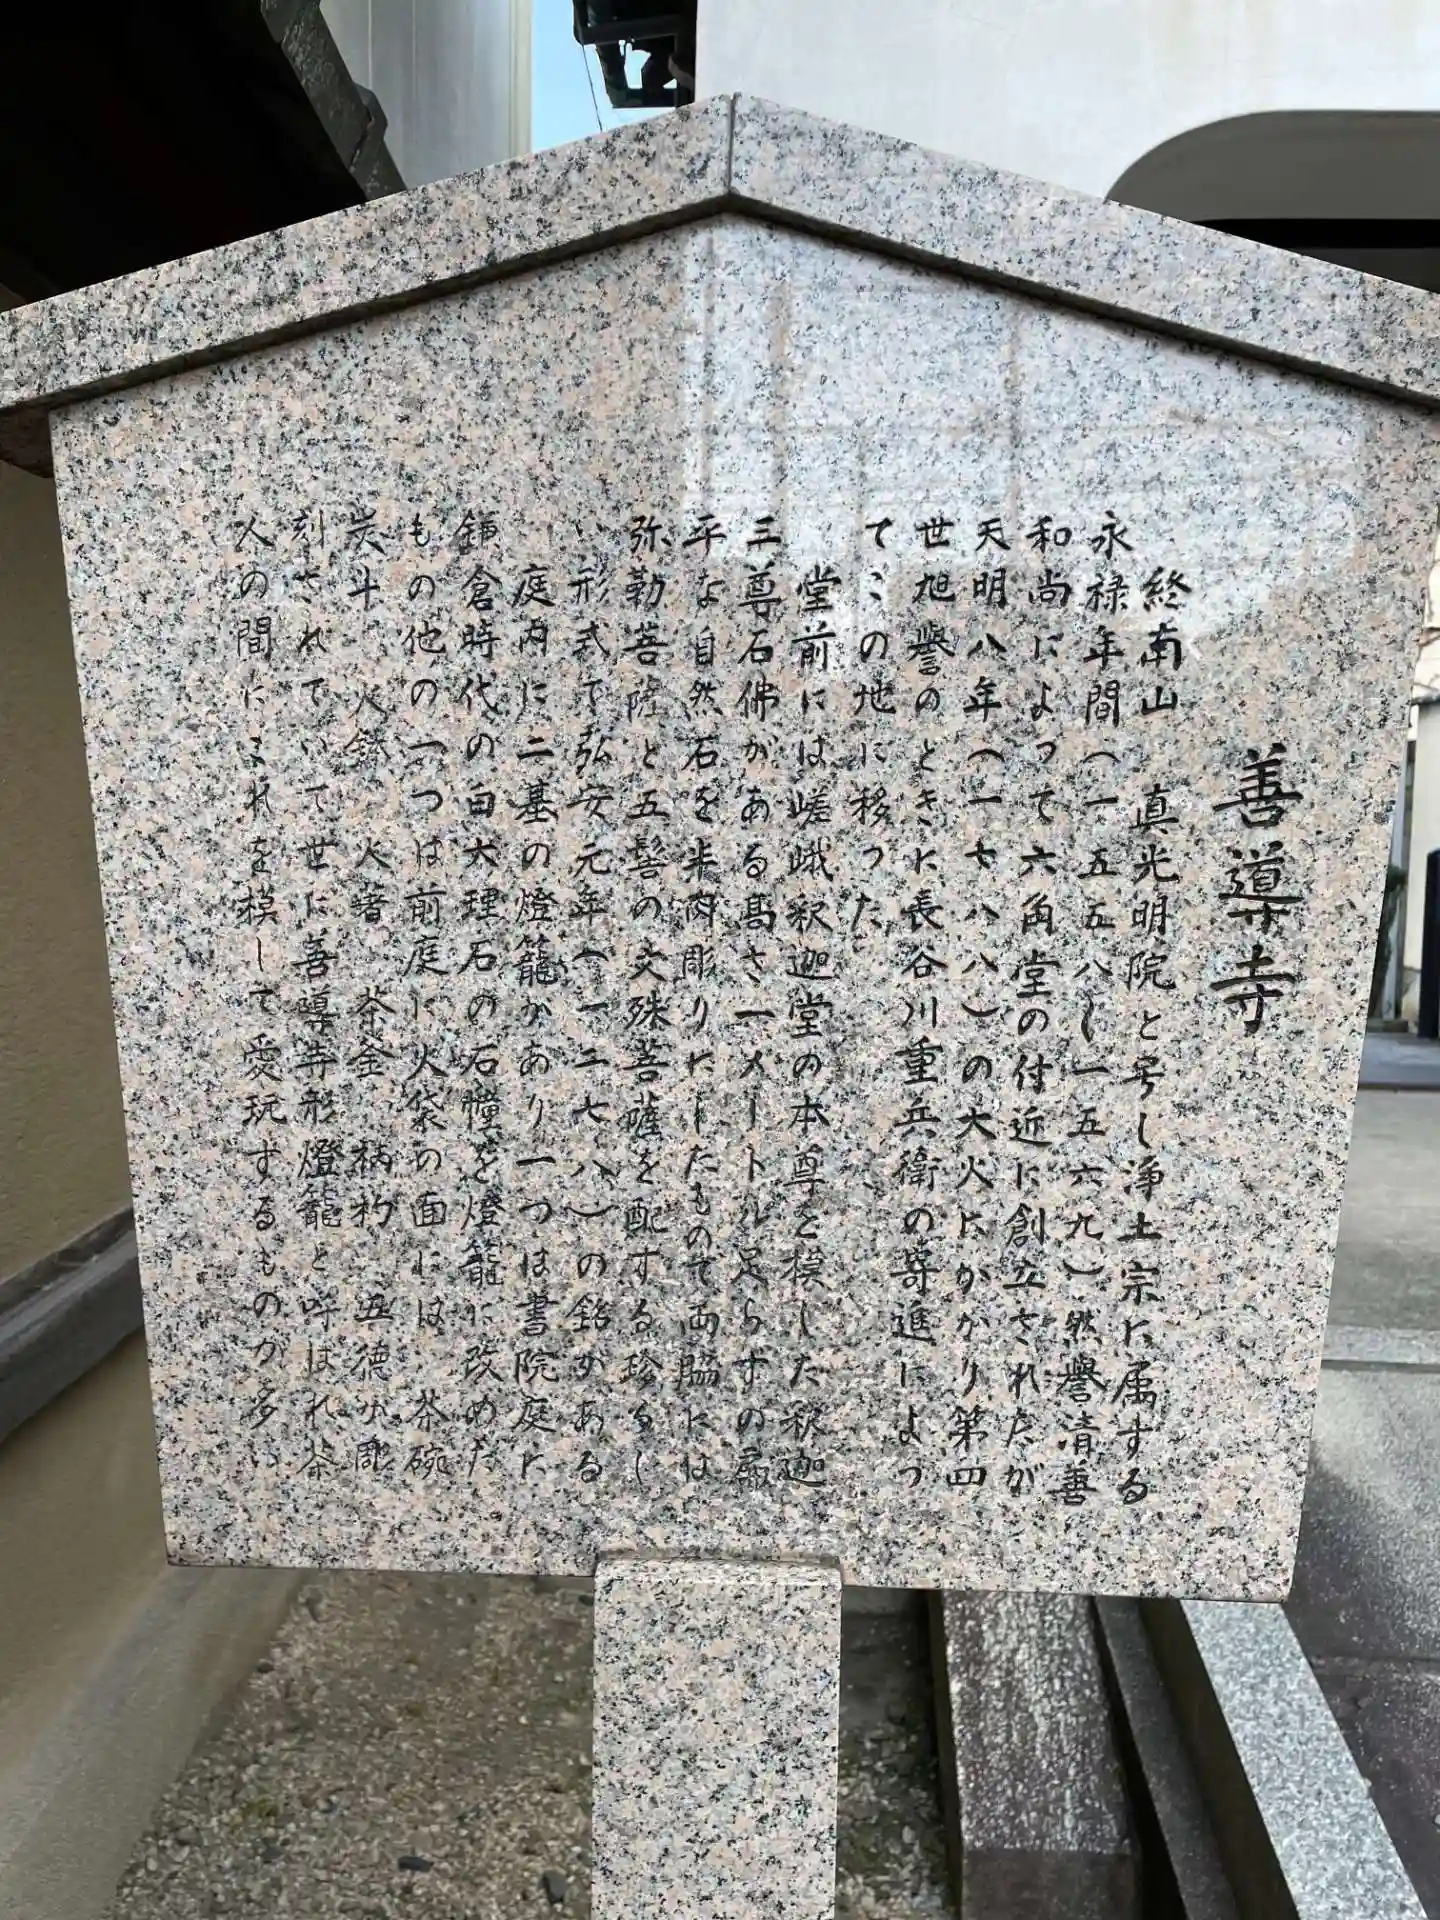 善導寺
終南山　真光明院と号し浄土宗に属する
永禄年間（一五五八〜一五六九）然譽清善
和尚によって六角堂の付近に創立されたが
天明八年（一七八八）の大火にかかり第四
世旭譽のときに長谷川重兵衛の寄進によっ
てこの地に移った。
堂前には嵯峨釈迦堂の本尊を模した釈迦
三尊石佛がある高さ一メートル足らずの扁
平な自然石を半肉彫りにしたもので両脇には
弥勒菩薩と五髻の文殊菩薩を配する珍らし
い形式で弘安元年（一二七八）の銘がある
庭内に二基の燈籠があり一つは書院庭に
鎌倉時代の白大理石の石幢を燈籠に改めた
もの他の一つは前庭に火袋の面には、茶碗
炭斗、火鉢、火箸、茶釜、柄杓、五徳が彫
刻されていて世に善導寺形燈籠と呼ばれ茶
人の間にこれを模して愛玩するものが多い